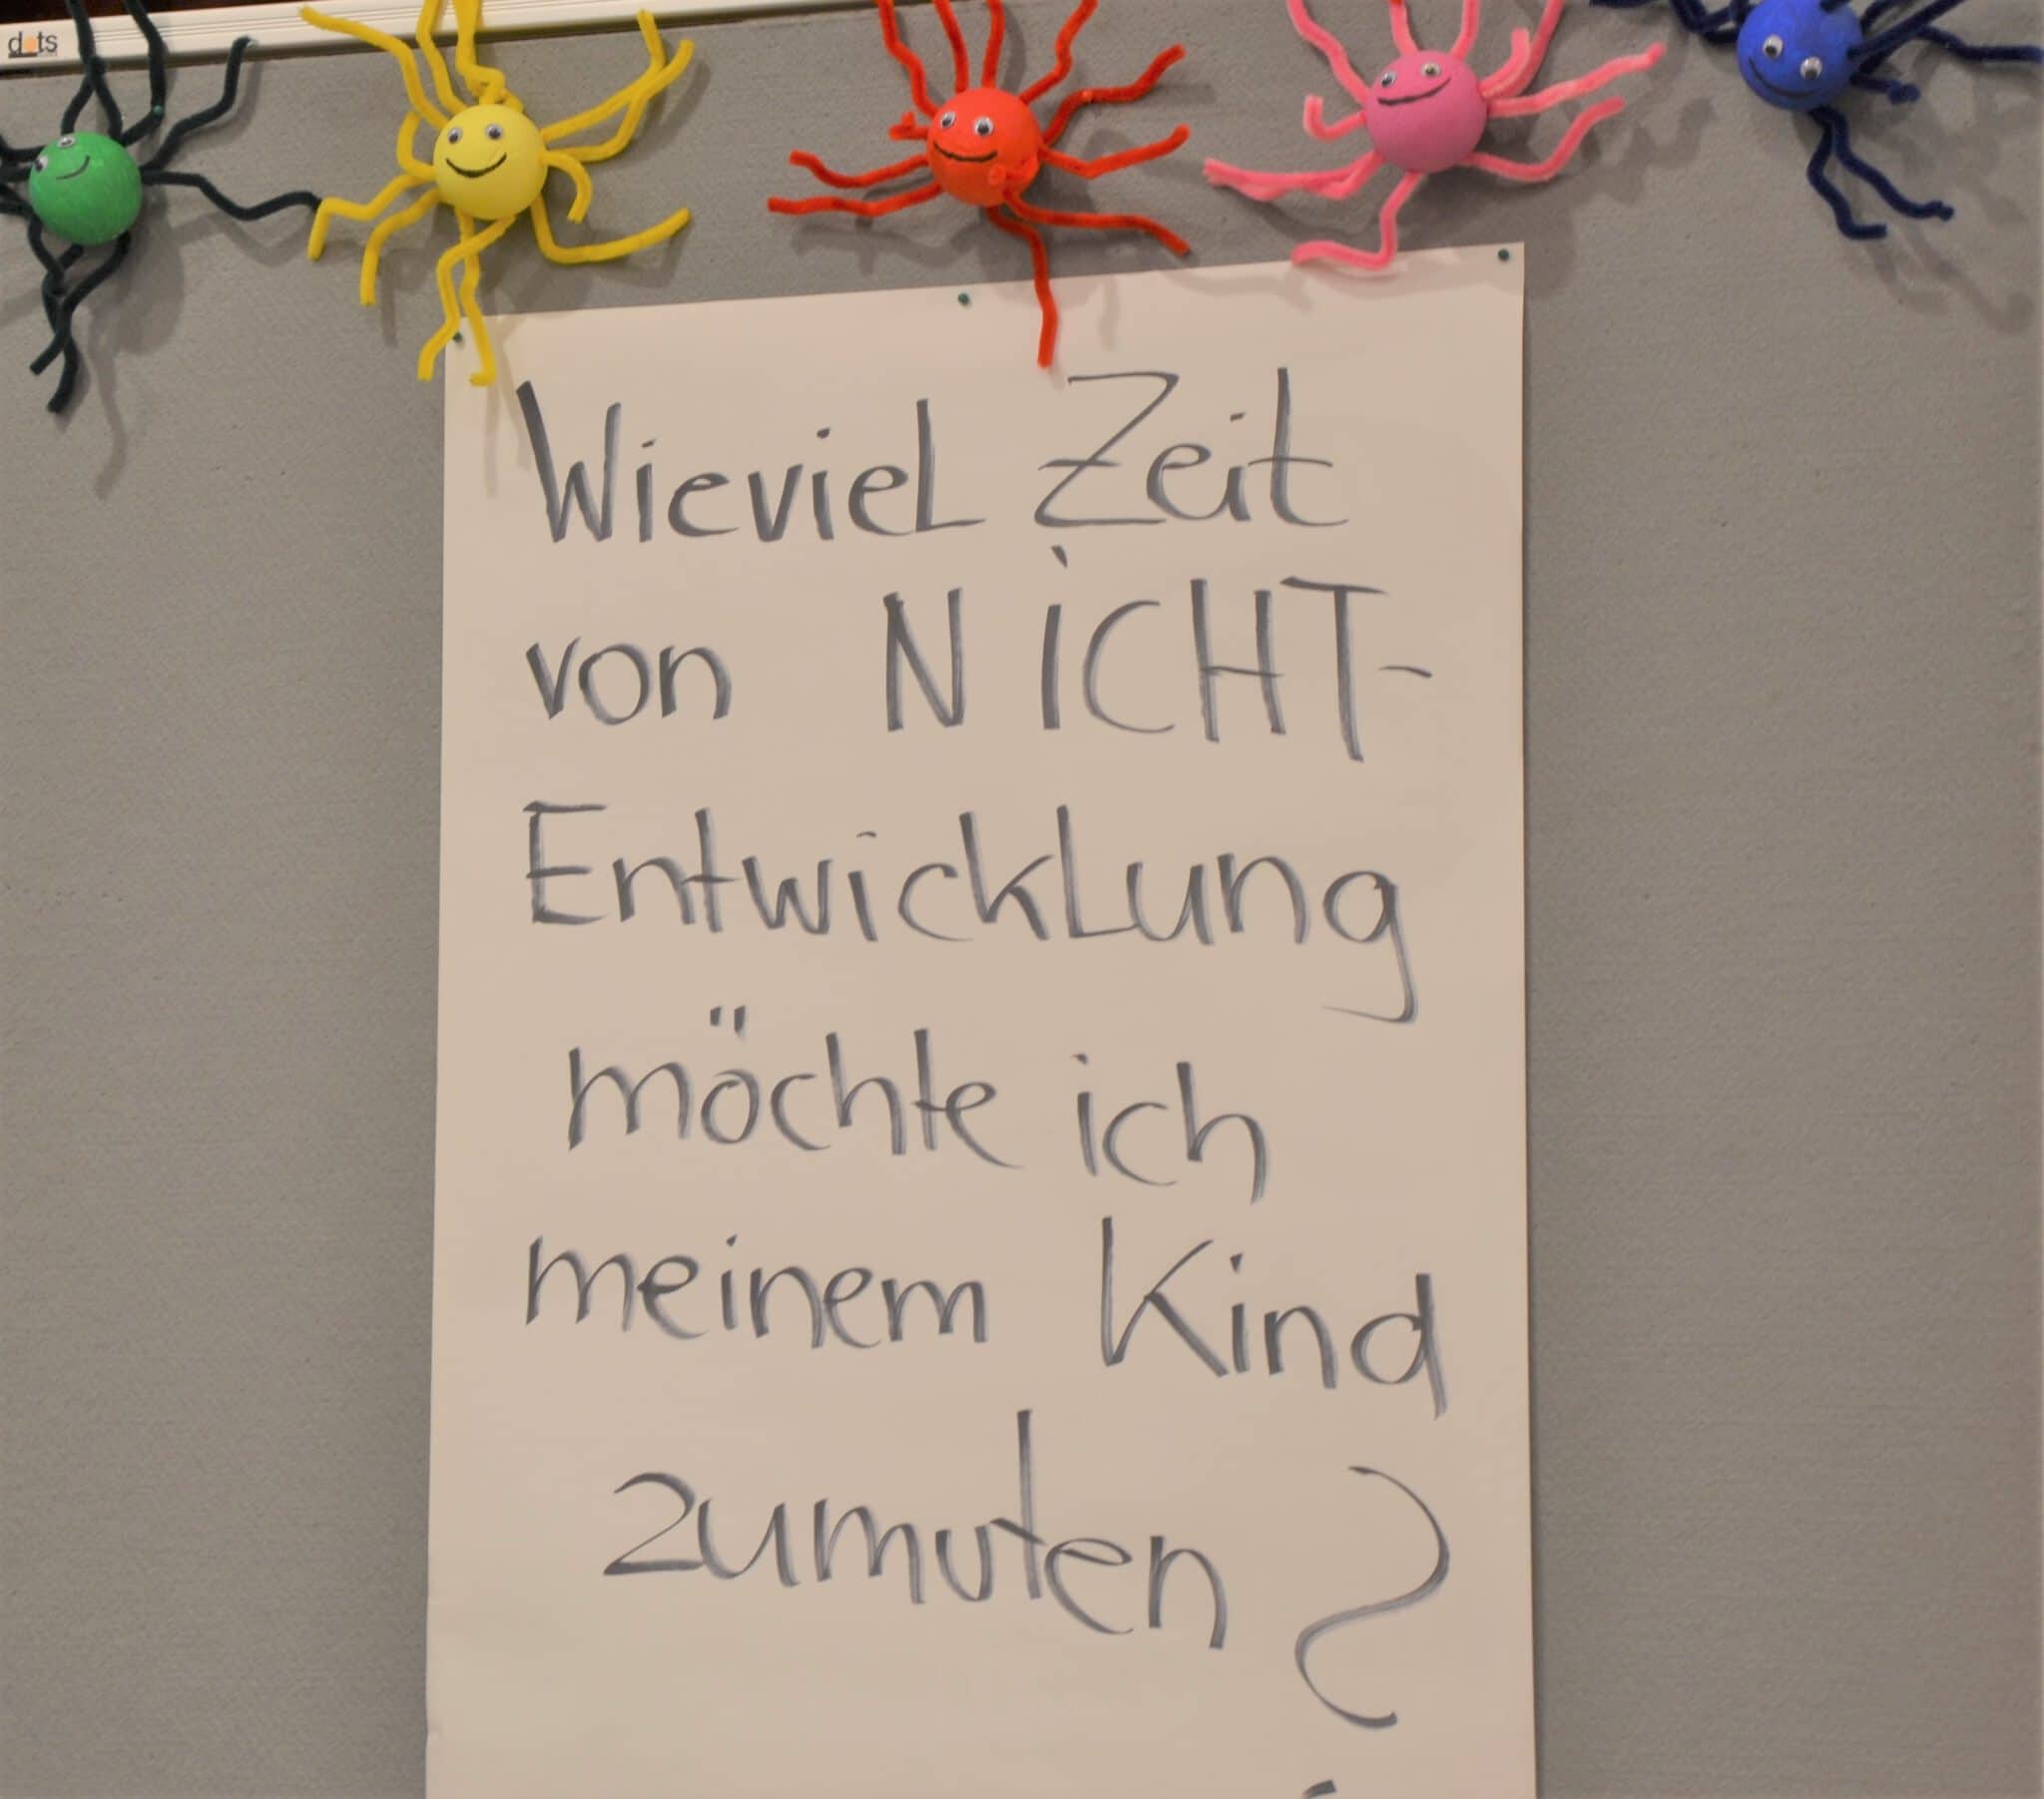 dots
Wieviel Zeit
von NICHT-
Entwicklung
möchte ich
meinem Kind
zumuten?